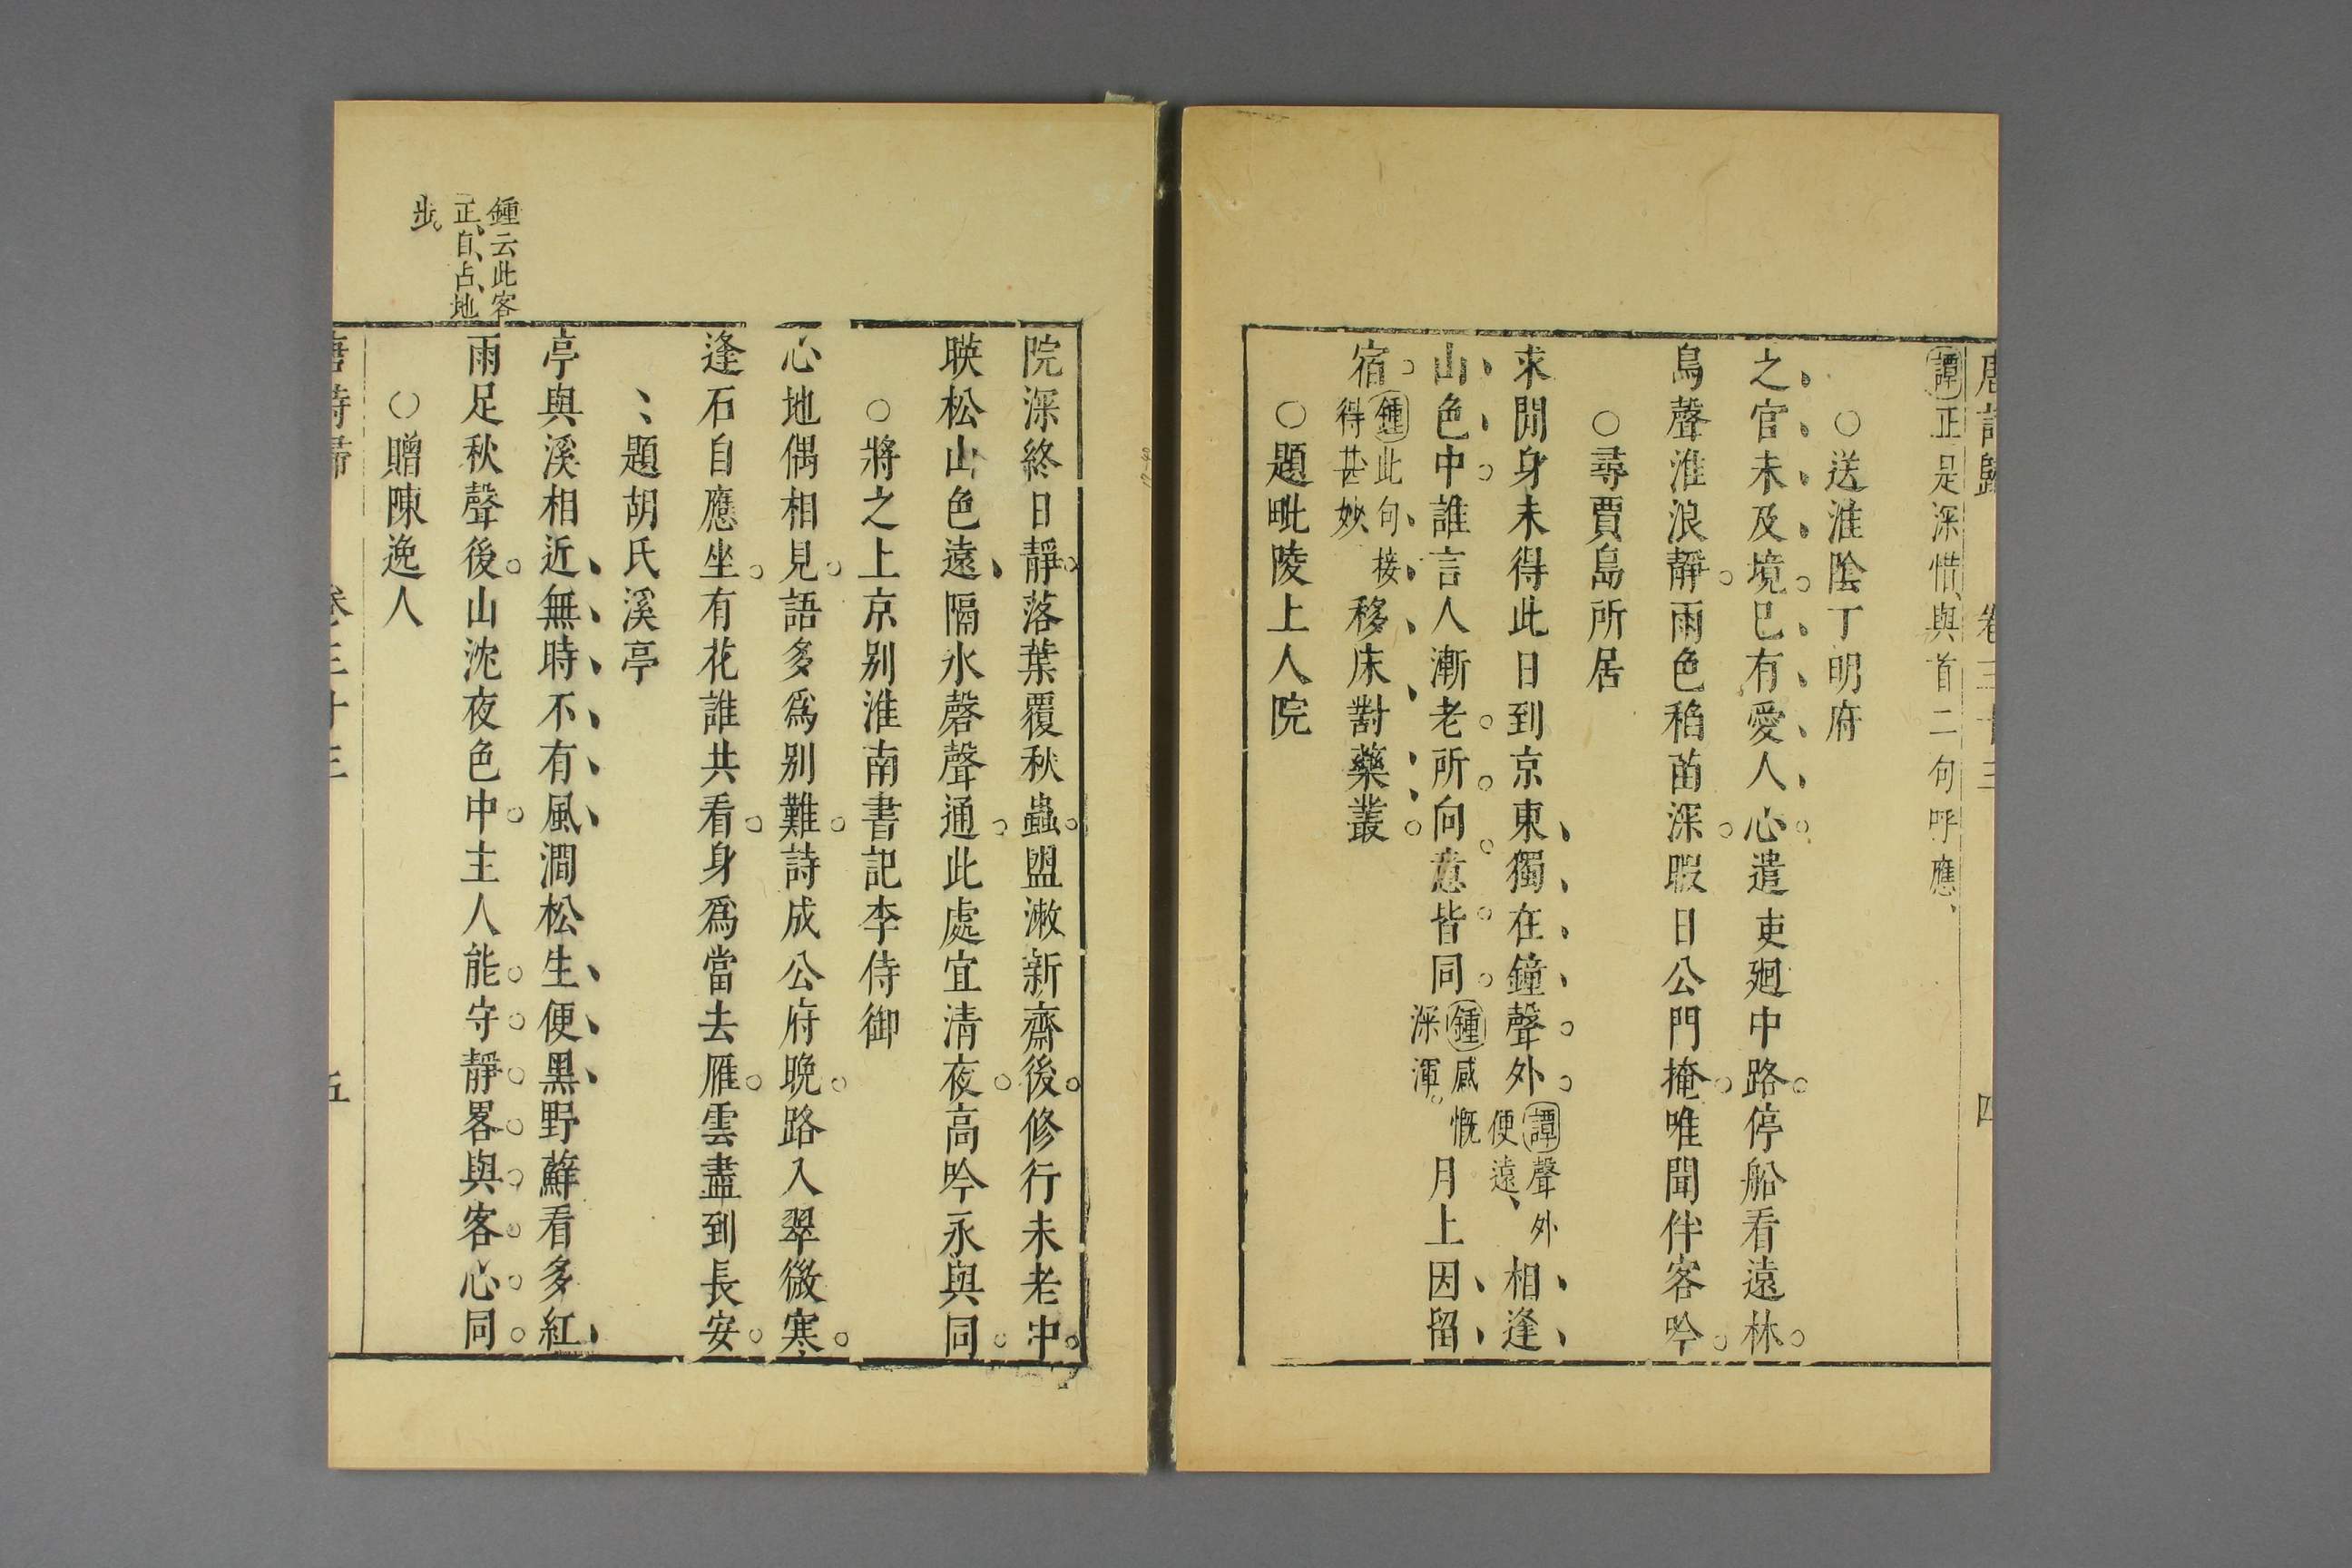 唐詩歸 卷三十三 四
譚正是深惜與首二句呼應
○送淮陰丁明府
之官未及境巳有愛人心遣吏廻中路停船看遠林
鳥聲淮浪靜雨色稻苗深暇日公門掩唯聞伴客吟
○尋賈島所居
求閒身未得此日到京東獨在鐘聲外譚聲外便遠相逢
山色中誰言人漸老所向意皆同鍾感慨深渾月上因留
宿鍾此句接得甚妙移床對藥叢
○題毗陵上人院
院深終日靜落葉覆秋蟲盥漱新齋後修行未老中
映松山色遠隔水磬聲通此處宜清夜高吟永與同
○將之上京别淮南書記李侍御
心地偶相見語多爲别難詩成公府晚路入翠微寒
逢石自應坐有花誰共看身爲當去雁雲盡到長安
題胡氏溪亭
亭與溪相近無時不有風澗松生便黑野蘚看多紅
鍾云此客
正自占地
步
雨足秋聲後山沈夜色中主人能守靜畧與客心同
○贈陳逸人
唐詩歸 卷三十三 五